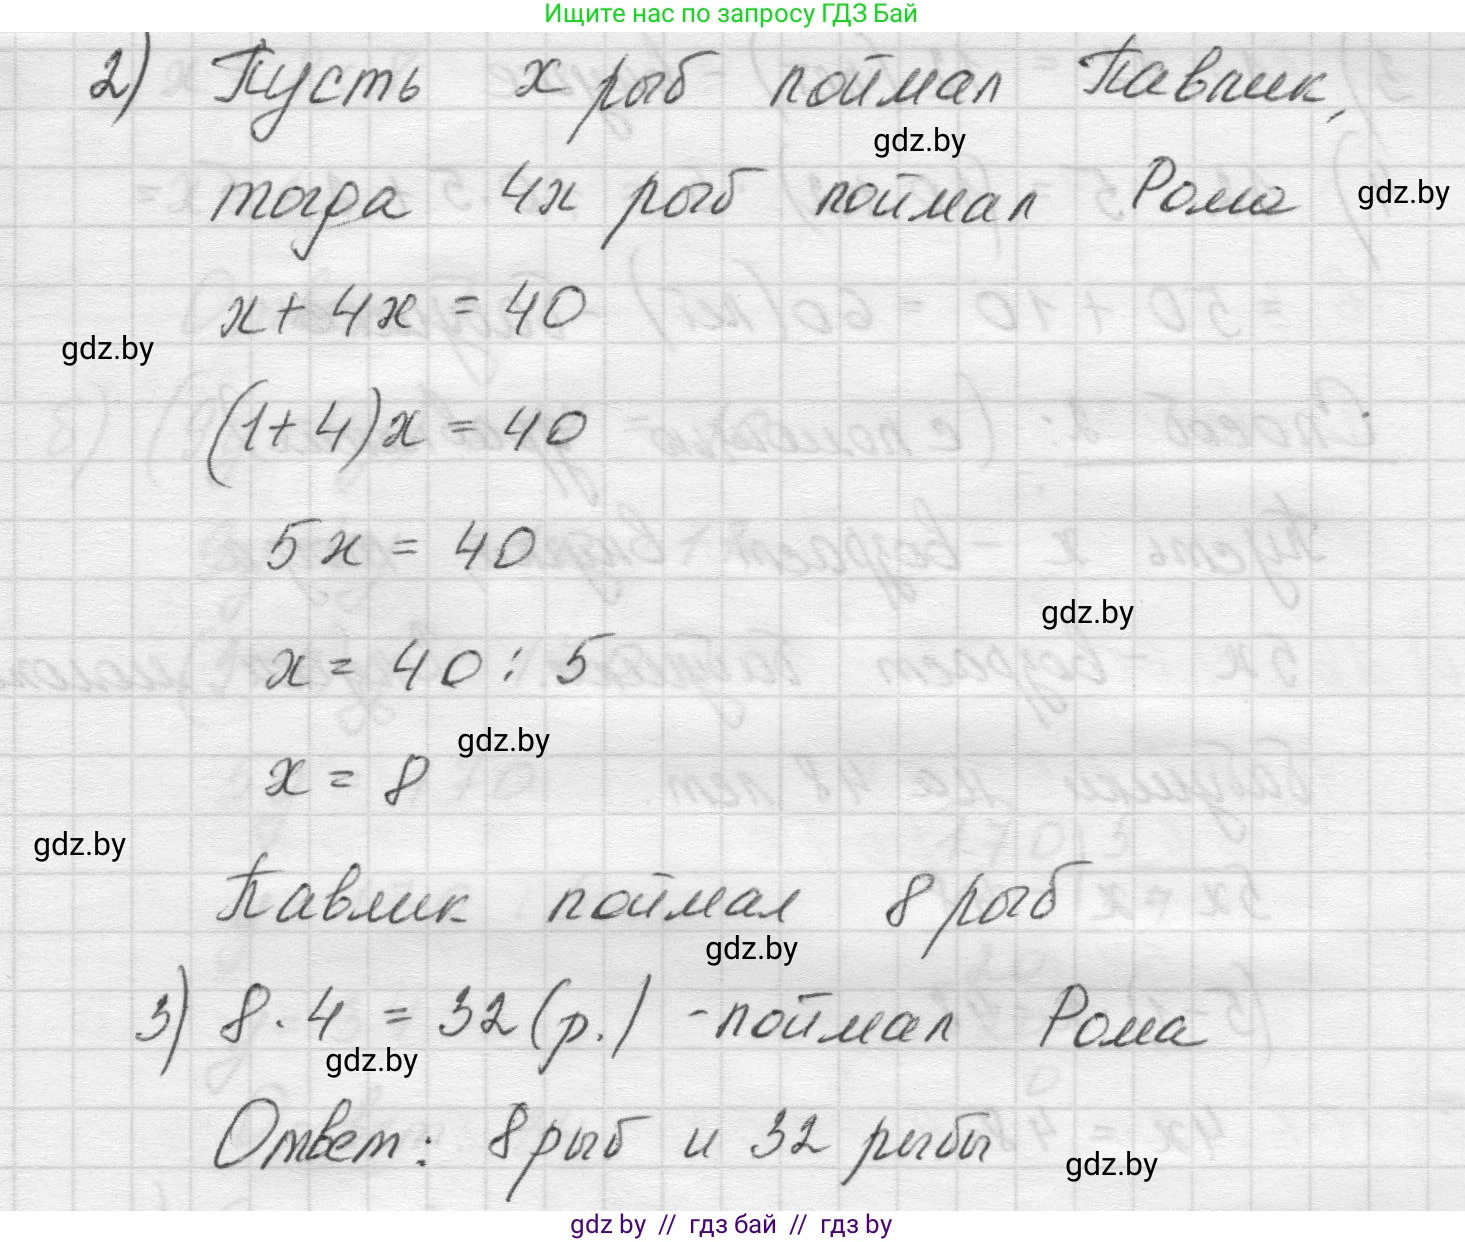 Ищите нас по запросу ГДЗ Бай
2) Пусть x рыб поймал Павлик,
gdz.by
тогда 4x рыб поймал Рома
gdz.by
x + 4x = 40
gdz.by
(1 + 4)x = 40
5x = 40
gdz.by
x = 40 : 5
gdz.by
x = 8
gdz.by
Павлик поймал 8 рыб
gdz.by
3) 8 · 4 = 32 (р.) - поймал Рома
gdz.by
Ответ: 8 рыб и 32 рыбы
gdz.by
gdz by // гдз бай // гдз by